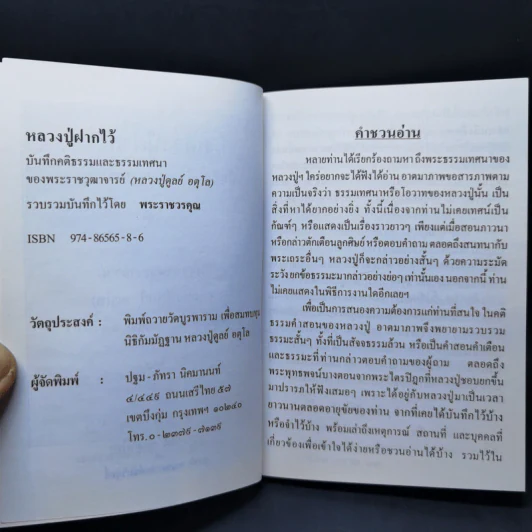 หลวงปู่ฝากไว้
บันทึกคติธรรมและธรรมเทศนา
ของพระราชวุฒาจารย์ (หลวงปู่ดูลย์ อตุโล)
รวบรวมบันทึกไว้โดย พระราชวรคุณ
ISBN 974-86565-8-6
วัตถุประสงค์ : พิมพ์ถวายวัดบูรพาราม เพื่อสมทบทุน
นิธิกัมมัฏฐาน หลวงปู่ดูลย์ อตุโล
ผู้จัดพิมพ์ : ปฐม-ภัทรา นิคมานนท์
๔/๔๔๙ ถนนเสรีไทย ๕๗
เขตบึงกุ่ม กรุงเทพฯ ๑๐๒๔๐
โทร.๐-๒๓๗๙-๗๑๓๙
คำชวนอ่าน
หลายท่านได้เรียกร้องถามหา ถึงพระธรรมเทศนาของ
หลวงปู่ฯ ใคร่อยากจะได้ฟังได้อ่าน อาตมาภาพขอสารภาพตาม
ความเป็นจริงว่า ธรรมเทศนาหรือโอวาทของหลวงปู่นั้น เป็น
สิ่งที่หาได้ยากอย่างยิ่ง ทั้งนี้เนื่องจากท่านไม่เคยเทศน์เป็น
กัณฑ์ๆ หรือแสดงเป็นเรื่องราวยาวๆ เพียงแต่เมื่อสอนภาวนา
หรือกล่าวตักเตือนลูกศิษย์ หรือตอบคำถาม ตลอดถึงสนทนากับ
พระเถระอื่นๆ หลวงปู่ก็จะกล่าวอย่างสั้นๆ ด้วยความระมัด
ระวัง ยกข้อธรรมะมากล่าวอย่างย่อๆ เท่านั้นเอง นอกจากนี้ ท่าน
ไม่เคยแสดงในพิธีการงานใดอีกเลยฯ
เพื่อเป็นการสนองความต้องการแก่ท่านที่สนใจ ในคติ
ธรรมคำสอนของหลวงปู่ อาตมาภาพจึงพยายามรวบรวม
ธรรมะสั้นๆ ทั้งที่เป็นสัจจธรรมล้วน หรือเป็นคำสอนคำเตือน
และธรรมะที่ท่านกล่าวตอบคำถามของผู้ถาม ตลอดถึง
พระพุทธพจน์บางตอนจากพระไตรปิฎกที่หลวงปู่ชอบยกขึ้น
มาปรารภให้ฟังเสมอๆ เพราะได้อยู่กับหลวงปู่มาเป็นเวลา
ยาวนานตลอดอายุขัยของท่าน จากที่เคยได้บันทึกไว้บ้าง
หรือจำไว้บ้าง พร้อมเล่าถึงเหตุการณ์ สถานที่ และบุคคลที่
เกี่ยวข้องเพื่อเข้าใจได้ง่ายหรือชวนอ่านได้บ้าง รวมไว้ใน